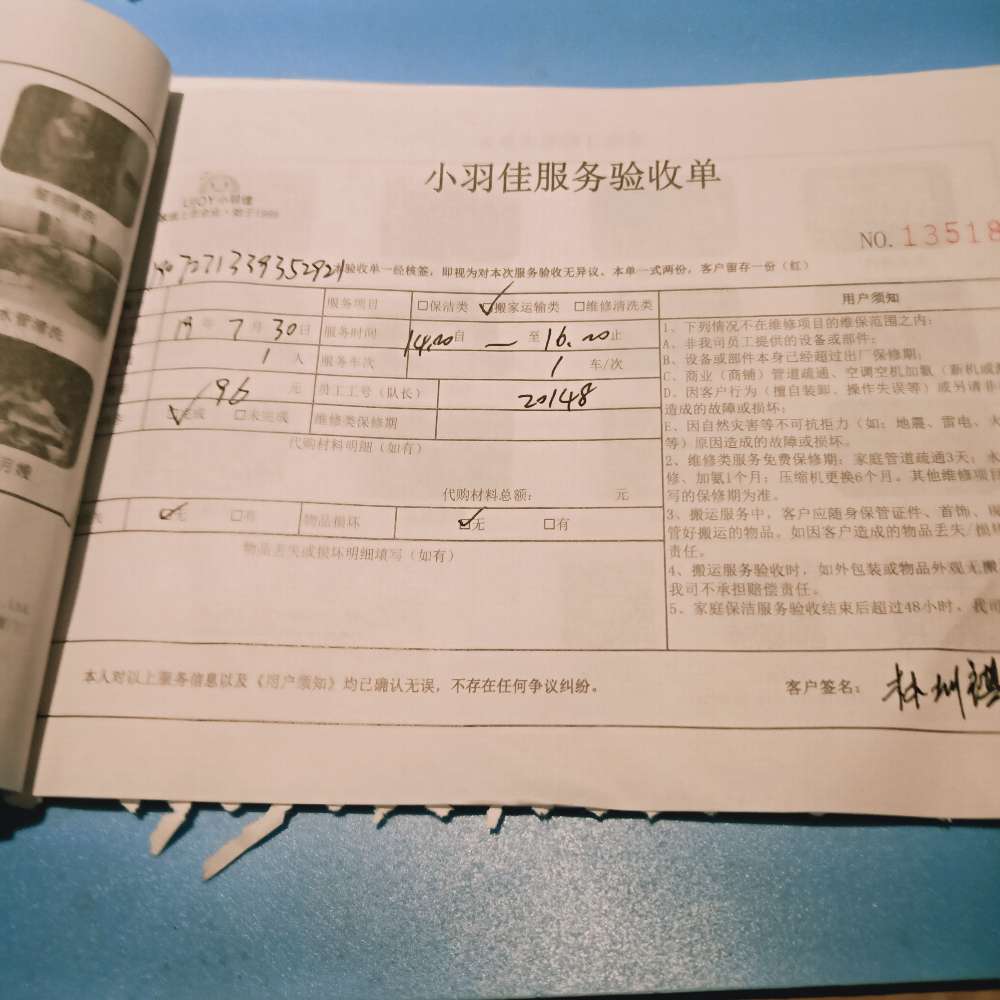 小羽佳服务验收单
NO. 13518
本验收单一经核签，即视为对本次服务验收无异议、本单一式两份，客户留存一份（红）
服务项目 □保洁类 ☑搬家运输类 □维修清洗类
19年7月30日 服务时间 14.20自 — 至16.20止
1人 服务车次 1 车/次
96元 员工工号（队长） 20148
☑完成 □未完成 维修类保修期
代购材料明细（如有）
代购材料总额： 元
☑无 □有 物品损坏 ☑无 □有
物品丢失或损坏明细填写（如有）
用户须知
1、下列情况不在维修项目的维保范围之内：
A、非我司员工提供的设备或部件；
B、设备或部件本身已经超过出厂保修期；
C、商业（商铺）管道疏通、空调空机加氨（新机或
D、因客户行为（擅自装卸、操作失误等）或另请非
造成的故障或损坏；
E、因自然灾害等不可抗拒力（如：地震、雷电、
等）原因造成的故障或损坏。
2、维修类服务免费保修期：家庭管道疏通3天；水
修、加氨1个月；压缩机更换6个月。其他维修项目
写的保修期为准。
3、搬运服务中，客户应随身保管证件、首饰、
管好搬运的物品。如因客户造成的物品丢失/
责任。
4、搬运服务验收时，如外包装或物品外观无
我司不承担赔偿责任。
5、家庭保洁服务验收结束后超过48小时，我司
本人对以上服务信息以及《用户须知》均已确认无误，不存在任何争议纠纷。
客户签名：
水管清洗
月嫂